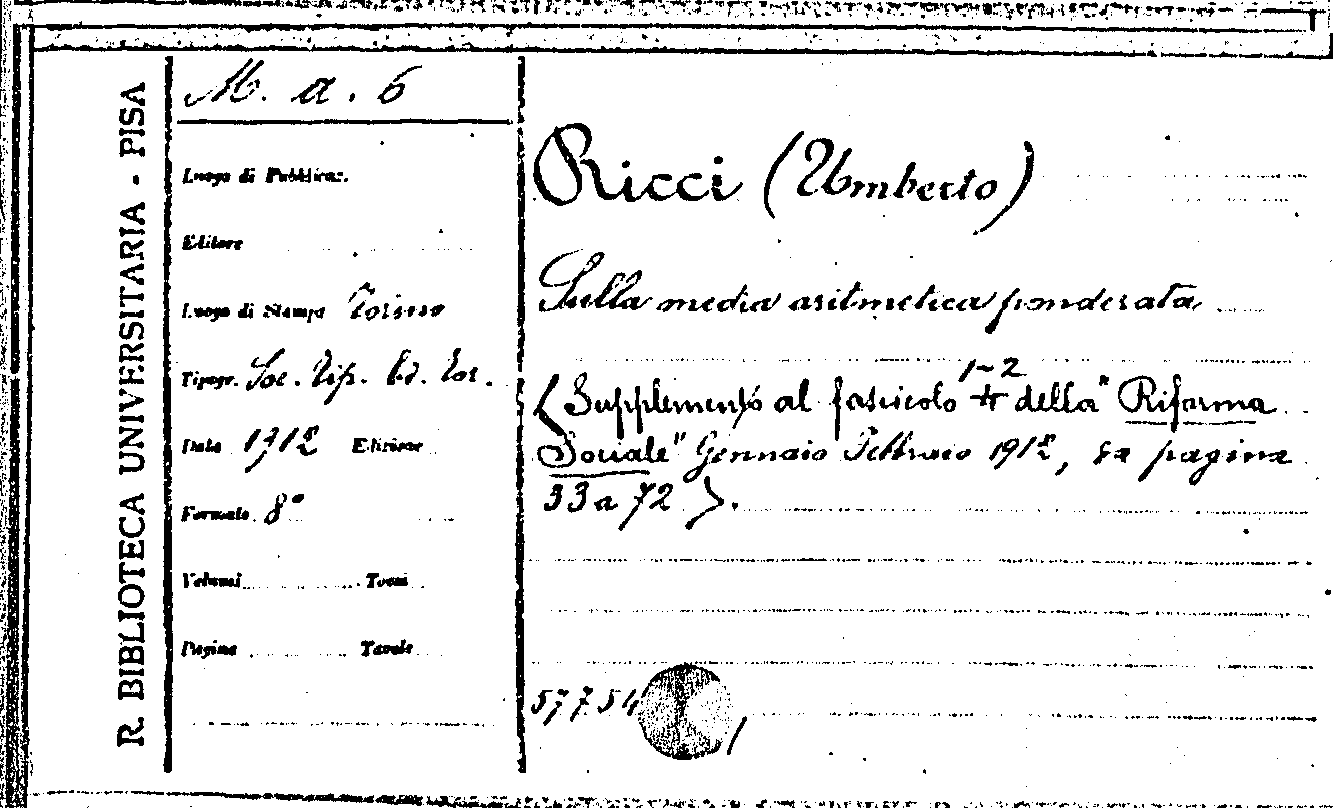 R. BIBLIOTECA UNIVERSITARIA - PISA
M. a. 6
Luogo di Pubblicaz.
Editore
Luogo di Stampa Torino
Tipogr. Soc. Tip. Ed. Tor.
Data 1912 Edizione
Formato 8°
Volumi Tomi
Pagine Tavole
Ricci (Umberto)
Sulla media aritmetica ponderata
1-2
(Supplemento al fascicolo della "Riforma
Sociale" Gennaio Febbraio 1912, da pagina
33 a 72).
57754